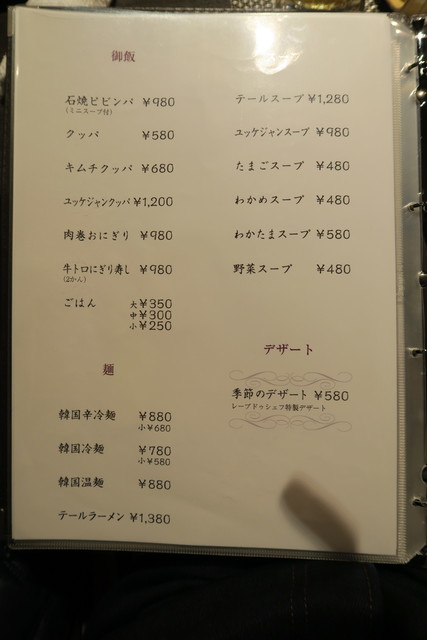 御飯
石焼ビビンバ ¥980
(ミニスープ付)
クッパ ¥580
キムチクッパ ¥680
ユッケジャンクッパ ¥1,200
肉巻おにぎり ¥980
牛トロにぎり寿し ¥980
(2かん)
ごはん 大¥350
中¥300
小¥250
麺
韓国辛冷麺 ¥880
小¥680
韓国冷麺 ¥780
小¥580
韓国温麺 ¥880
テールラーメン ¥1,380
テールスープ ¥1,280
ユッケジャンスープ ¥980
たまごスープ ¥480
わかめスープ ¥480
わかたまスープ ¥580
野菜スープ ¥480
デザート
季節のデザート ¥580
レーブドゥシェフ特製デザート